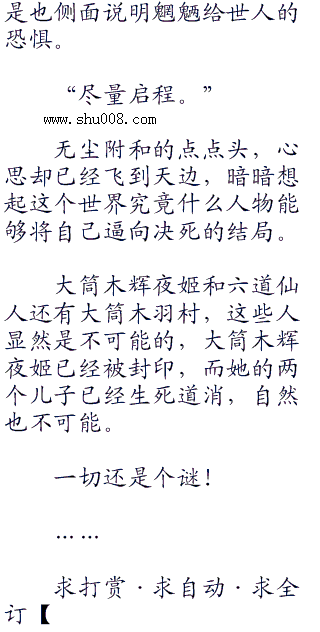 是也侧面说明魍魉给世人的
恐惧。
“尽量启程。”
www.shu008.com
无尘附和的点点头，心
思却已经飞到天边，暗暗想
起这个世界究竟什么人物能
够将自己逼向决死的结局。
大筒木辉夜姬和六道仙
人还有大筒木羽村，这些人
显然是不可能的，大筒木辉
夜姬已经被封印，而她的两
个儿子已经生死道消，自然
也不可能。
一切还是个谜！
……
求打赏·求自动·求全
订【